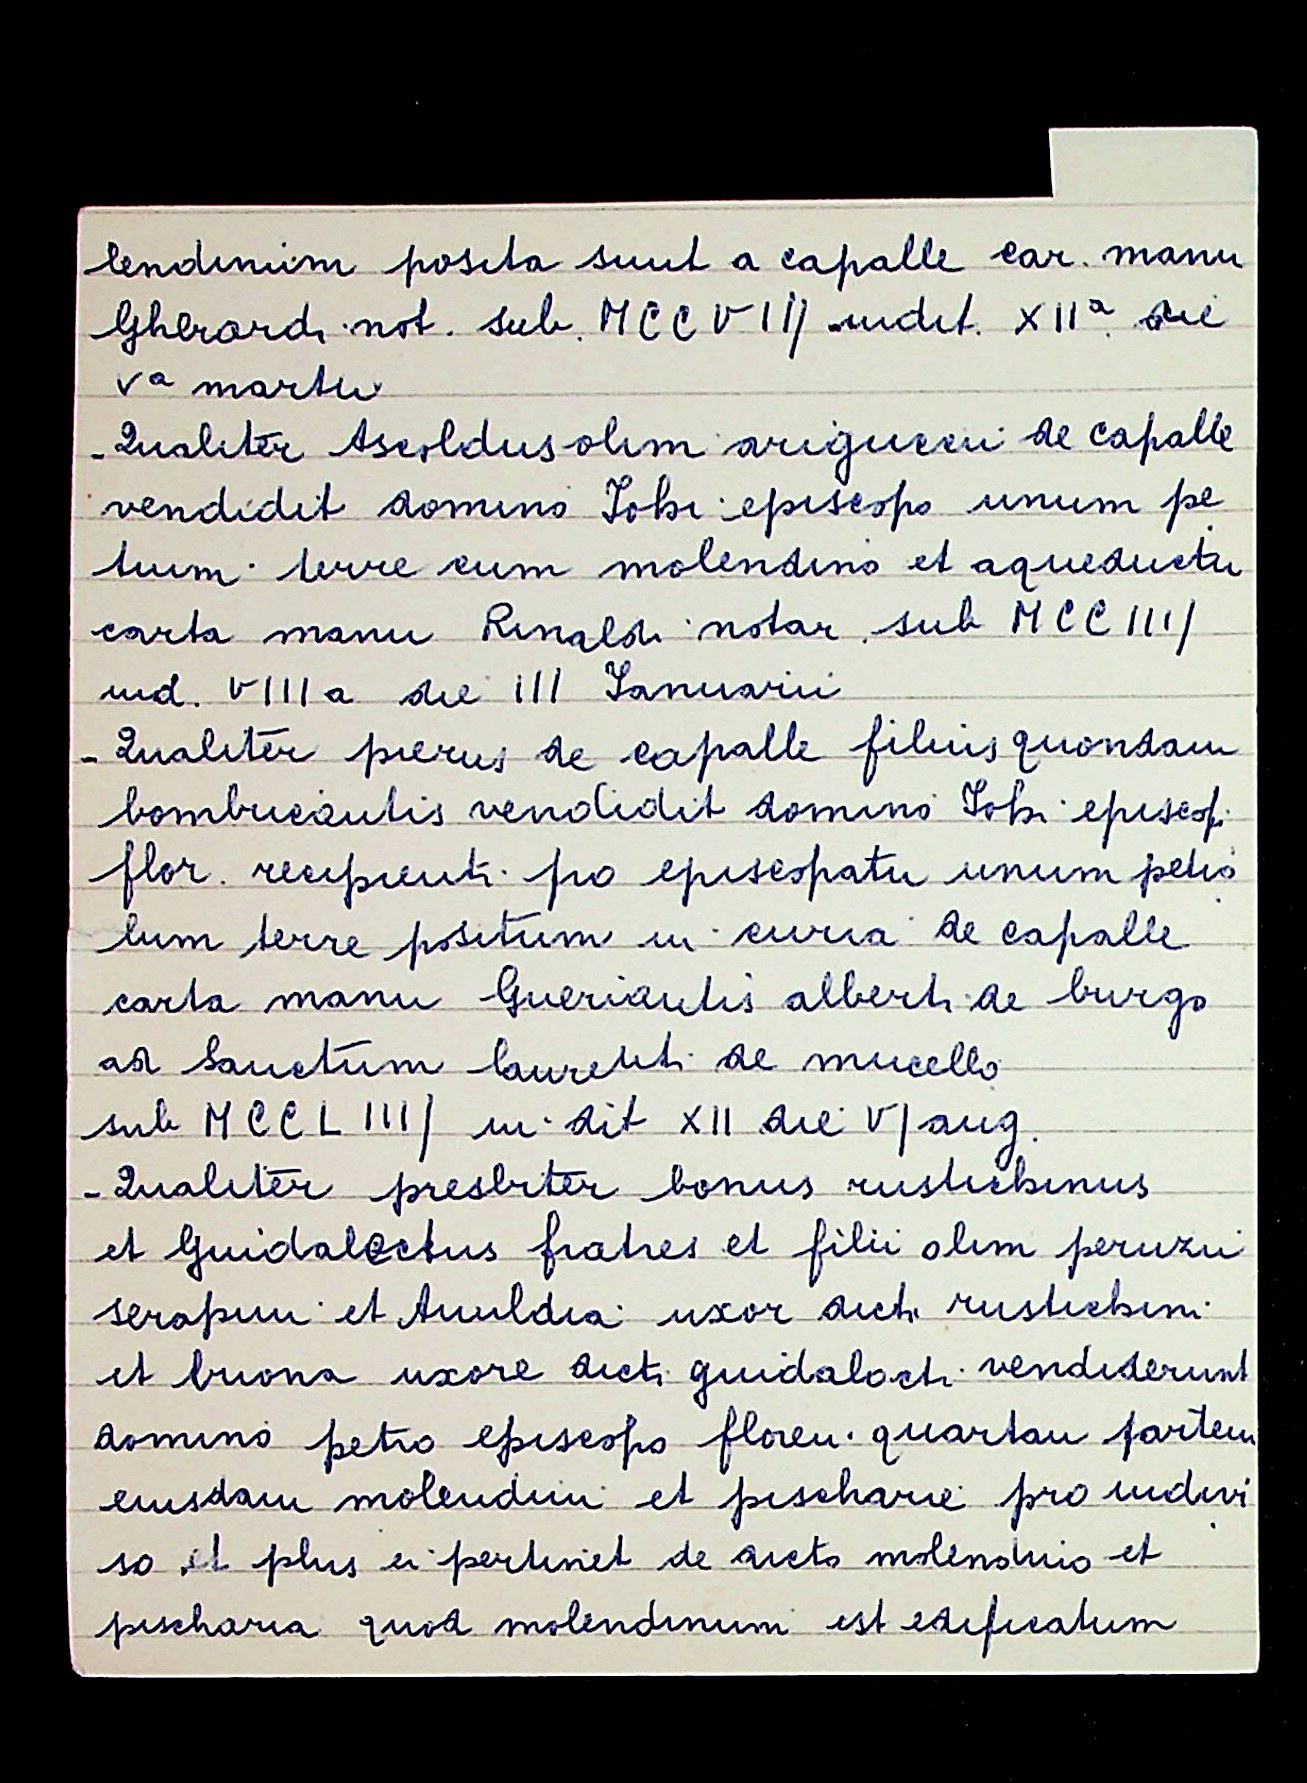 lendinum posita sunt a capalle car. manu
Gherardi not. sub. MCCVIII indit. XIIª die
Vª martii
- Qualiter Ascoldus olim ariguccii de capalle
vendidit domino Iohi episcopo unum pe
tium terre cum molendino et aqueductu
carta manu Rinaldi notar. sub MCCIIII
ind. VIIIa die III Ianuarii
- Qualiter pierus de capalle filius quondam
bombiciantis vendidit domino Iohi episcopi
flor. recipienti pro episcopatu unum petio
lum terre positum in curia de capalle
carta manu Gueriantis alberti de burgo
ad Sanctum laurenti de mucello
sub MCCLIIII in dit XII die VI aug.
- Qualiter presbiter bonus rustichinus
et Guidaloctus fratres et filii olim peruzii
serapini et uxor dicti rustichini
et buona uxore dicti guidalocti vendiderunt
domino petro episcopo floren. quartam partem
eiusdam molendini et pischarie pro indivi
so et plus ei pertinet de dicto molendino et
pischaria quod molendinum est edificatum